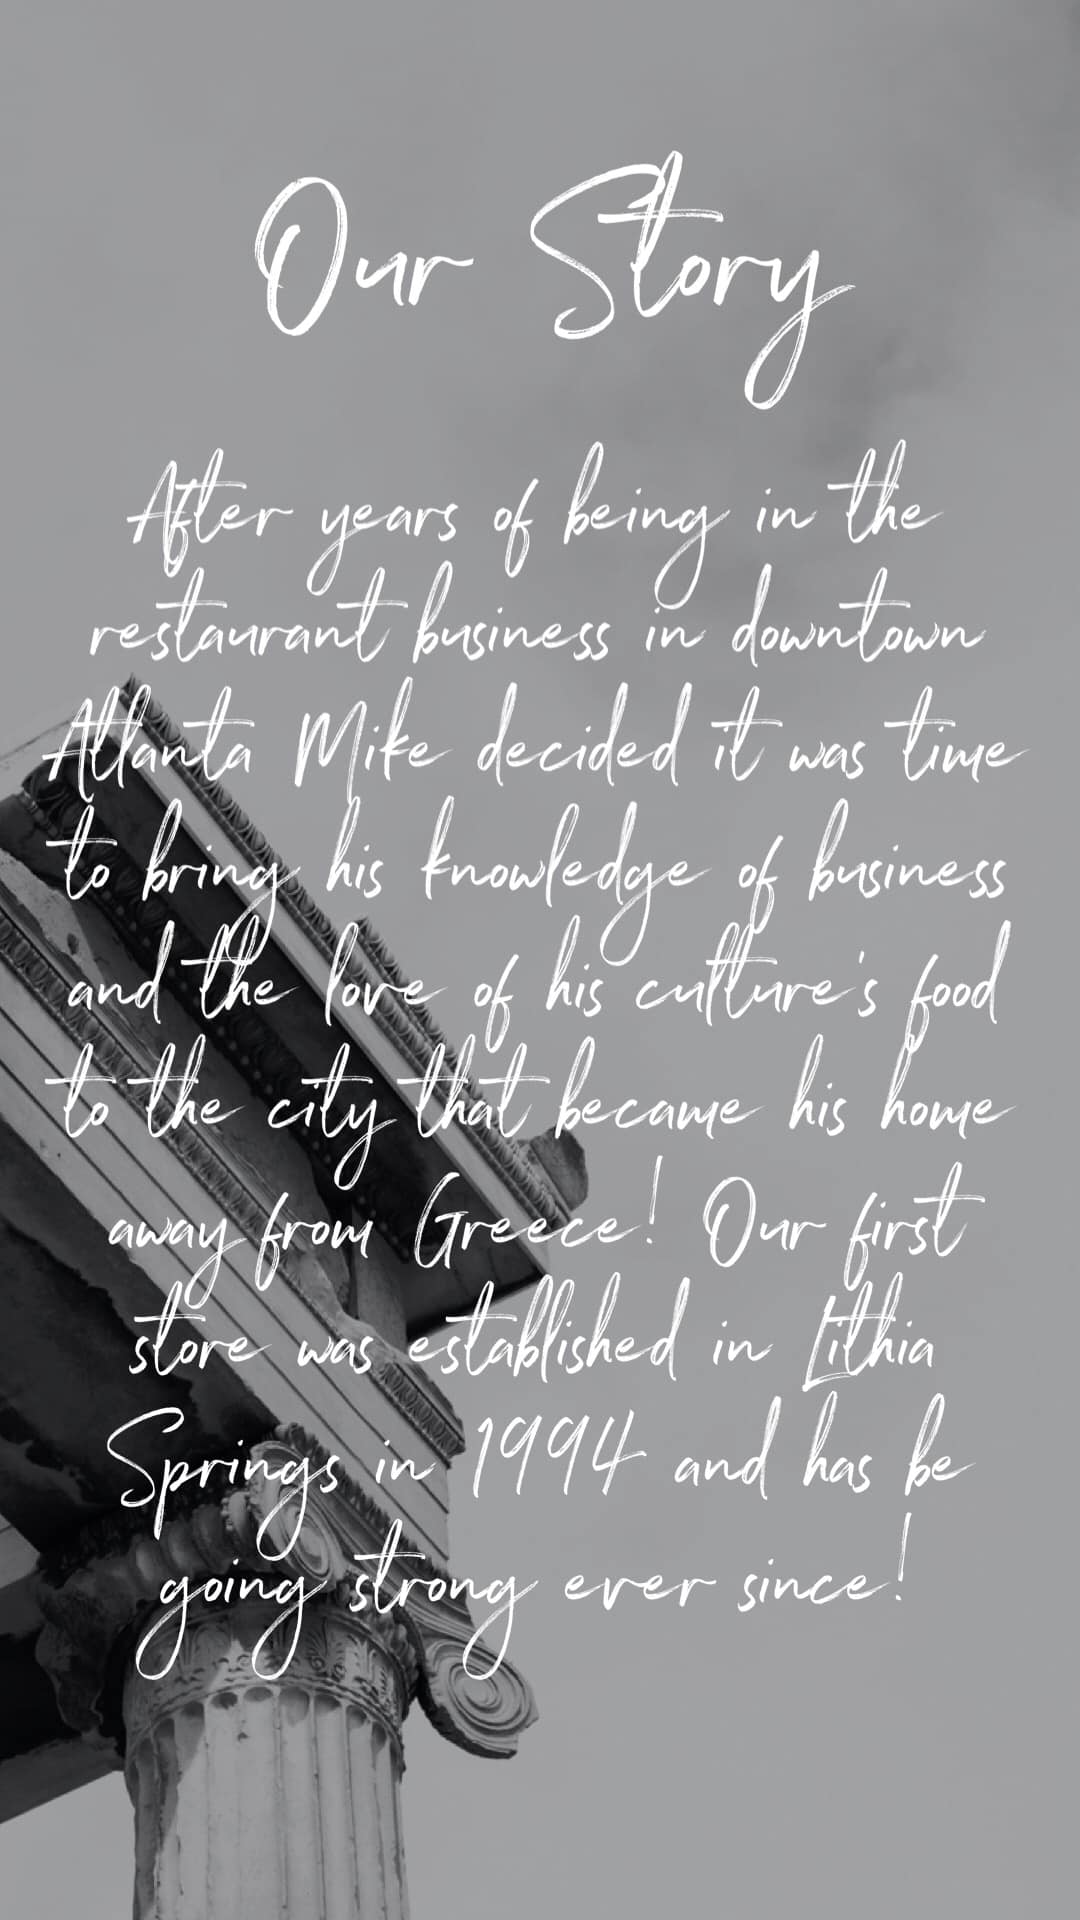 Our Story
After years of being in the
restaurant business in downtown
Atlanta Mike decided it was time
to bring his knowledge of business
and the love of his culture's food
to the city that became his home
away from Greece! Our first
store was established in Lithia
Springs in 1994 and has be
going strong ever since!